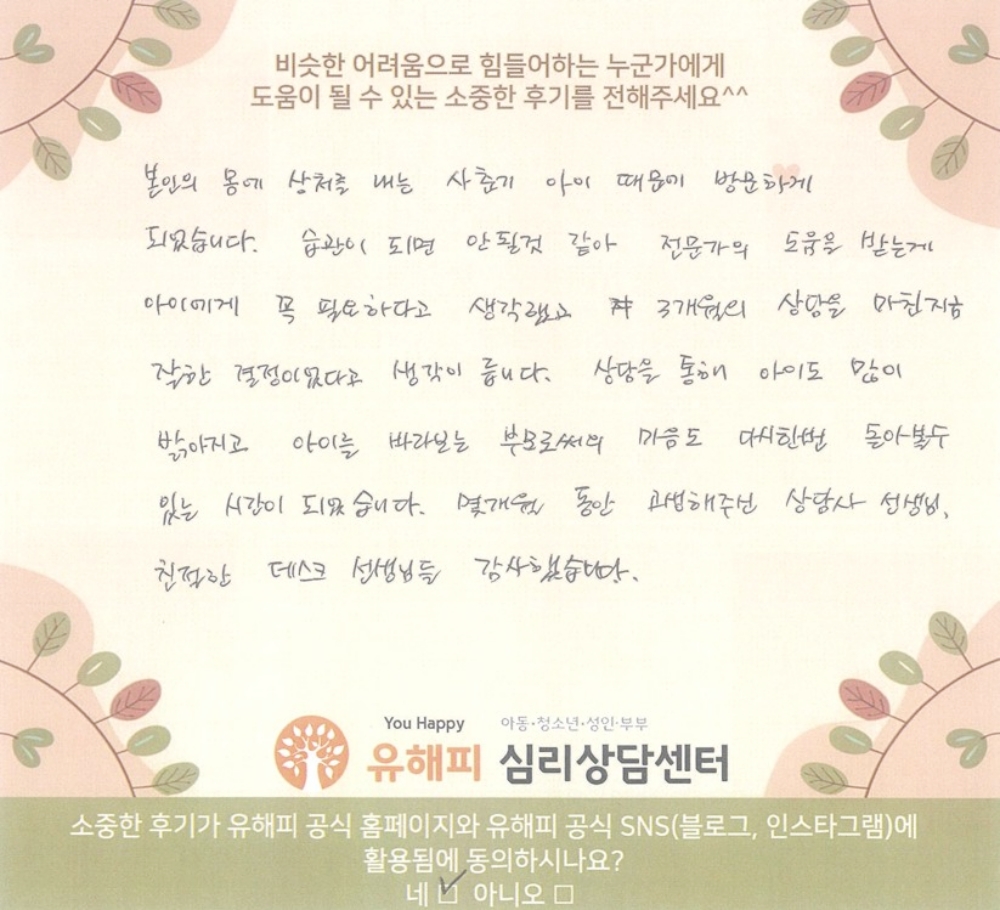 비슷한 어려움으로 힘들어하는 누군가에게
도움이 될 수 있는 소중한 후기를 전해주세요^^
본인의 몸에 상처를 내는 사춘기 아이 때문에 방문하게
되었습니다. 습관이 되면 안될것 같아 전문가의 도움을 받는게
아이에게 꼭 필요하다고 생각했고 3개월의 상담을 마친지금
잘한 결정이었다고 생각이 듭니다. 상담을 통해 아이도 많이
밝아지고 아이를 바라보는 부모로써의 마음도 다시한번 돌아볼수
있는 시간이 되었습니다. 몇개월 동안 고생해주신 상담사 선생님,
친절한 데스크 선생님들 감사했습니다.
You Happy 아동·청소년·성인·부부
유해피 심리상담센터
소중한 후기가 유해피 공식 홈페이지와 유해피 공식 SNS(블로그, 인스타그램)에
활용됨에 동의하시나요?
네 ☑ 아니오 □